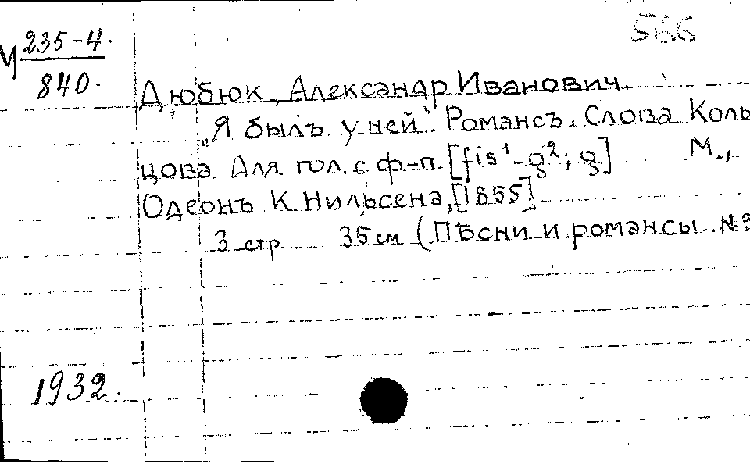 566
М 235-4.
840.
Дюбюк, Александр Иванович.
„Я былъ у ней“ Романсъ. Слова Коль
цова. Для гол. с ф-п. [fis¹-g²; g] М.,
Одеонъ К. Нильсена, [1855]
3 стр 35 см (Пѣсни и романсы №
1932.